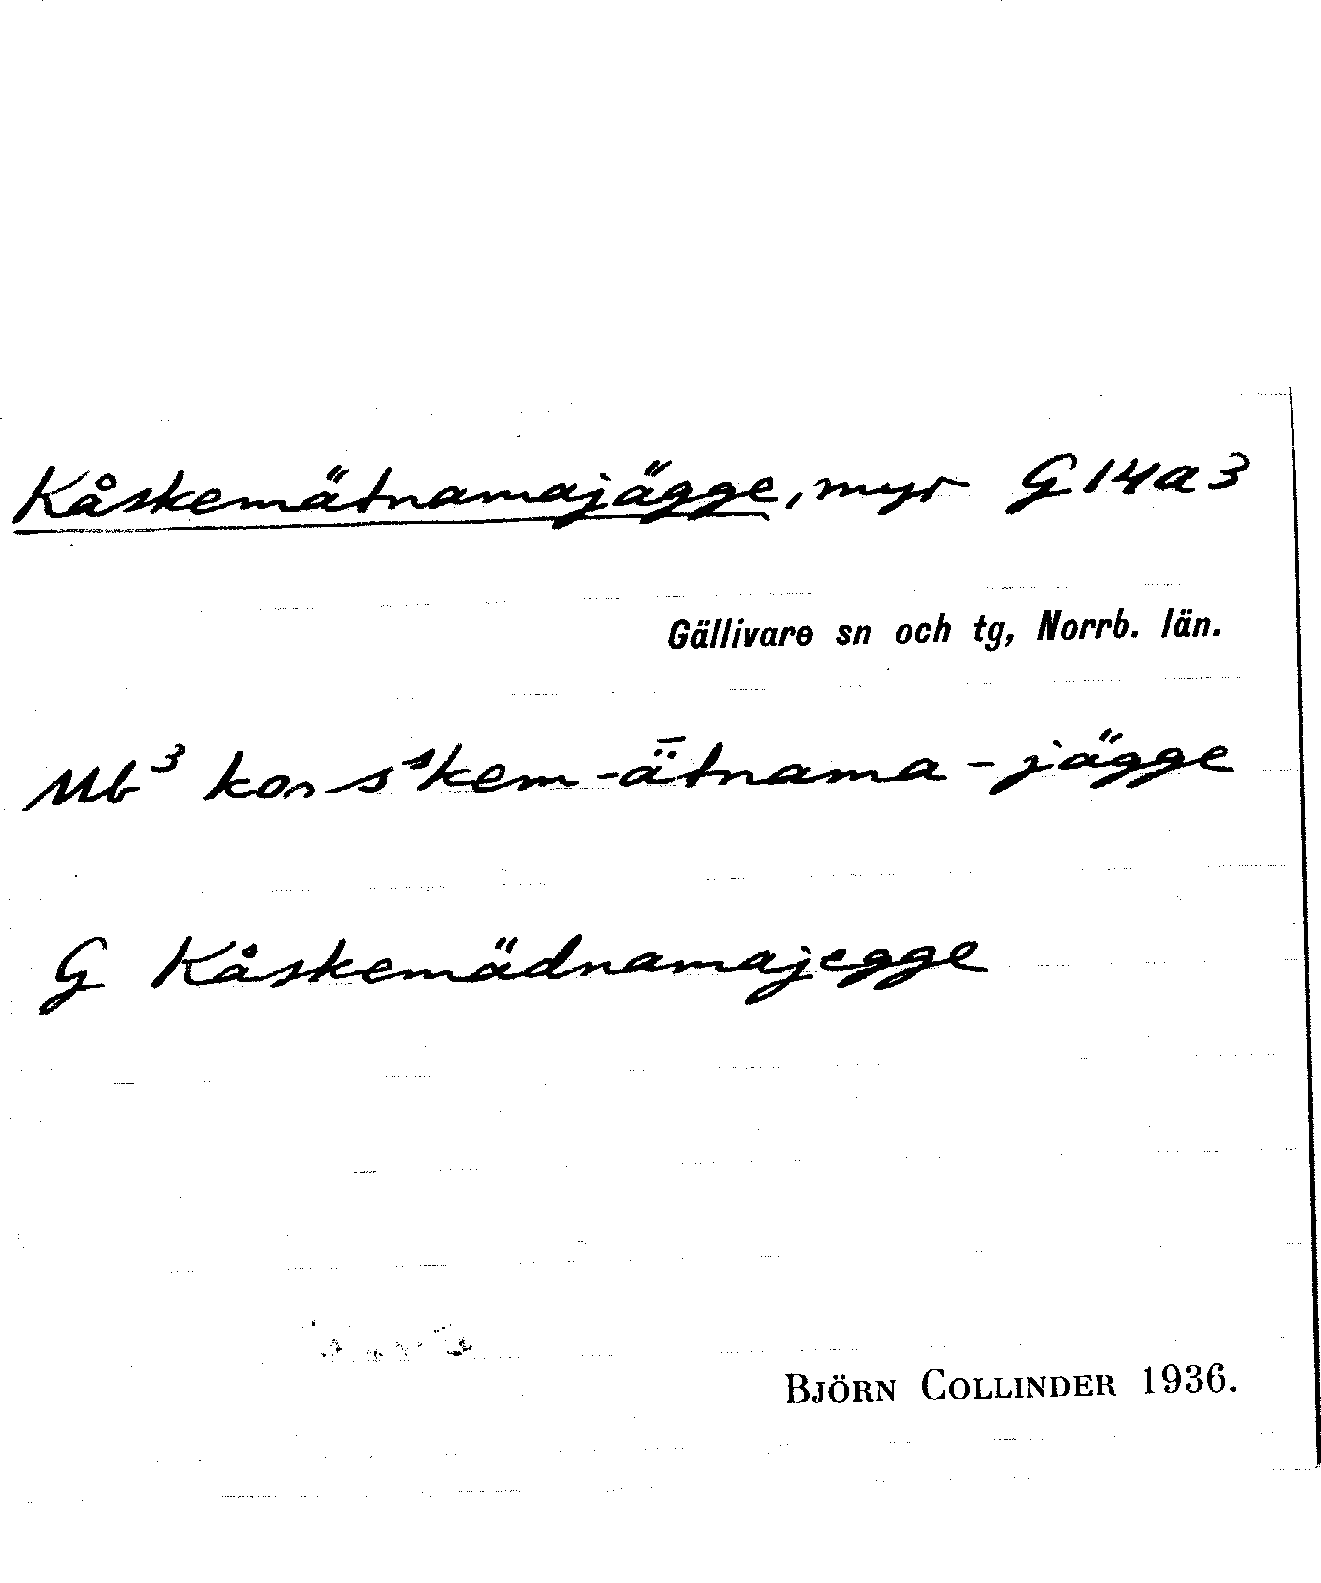 Kåskemätnamajägge, myr G 14 a 3
Gällivare sn och tg, Norrb. län.
Mb³ kosˢkem-ǟtnama-jägge
G Kåskemädnamajegge
BJÖRN COLLINDER 1936.